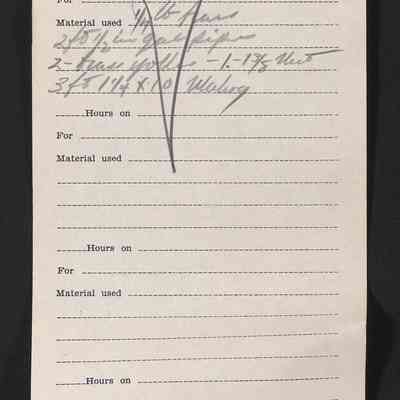 For
Material used 1/4 lb
2 ft 1/2 in Gal pipe
2 - Brass - 1 - 1 3/8 Nut
3 ft 1 1/4 x 10 Mahog
Hours on
For
Material used
Hours on
For
Material used
Hours on